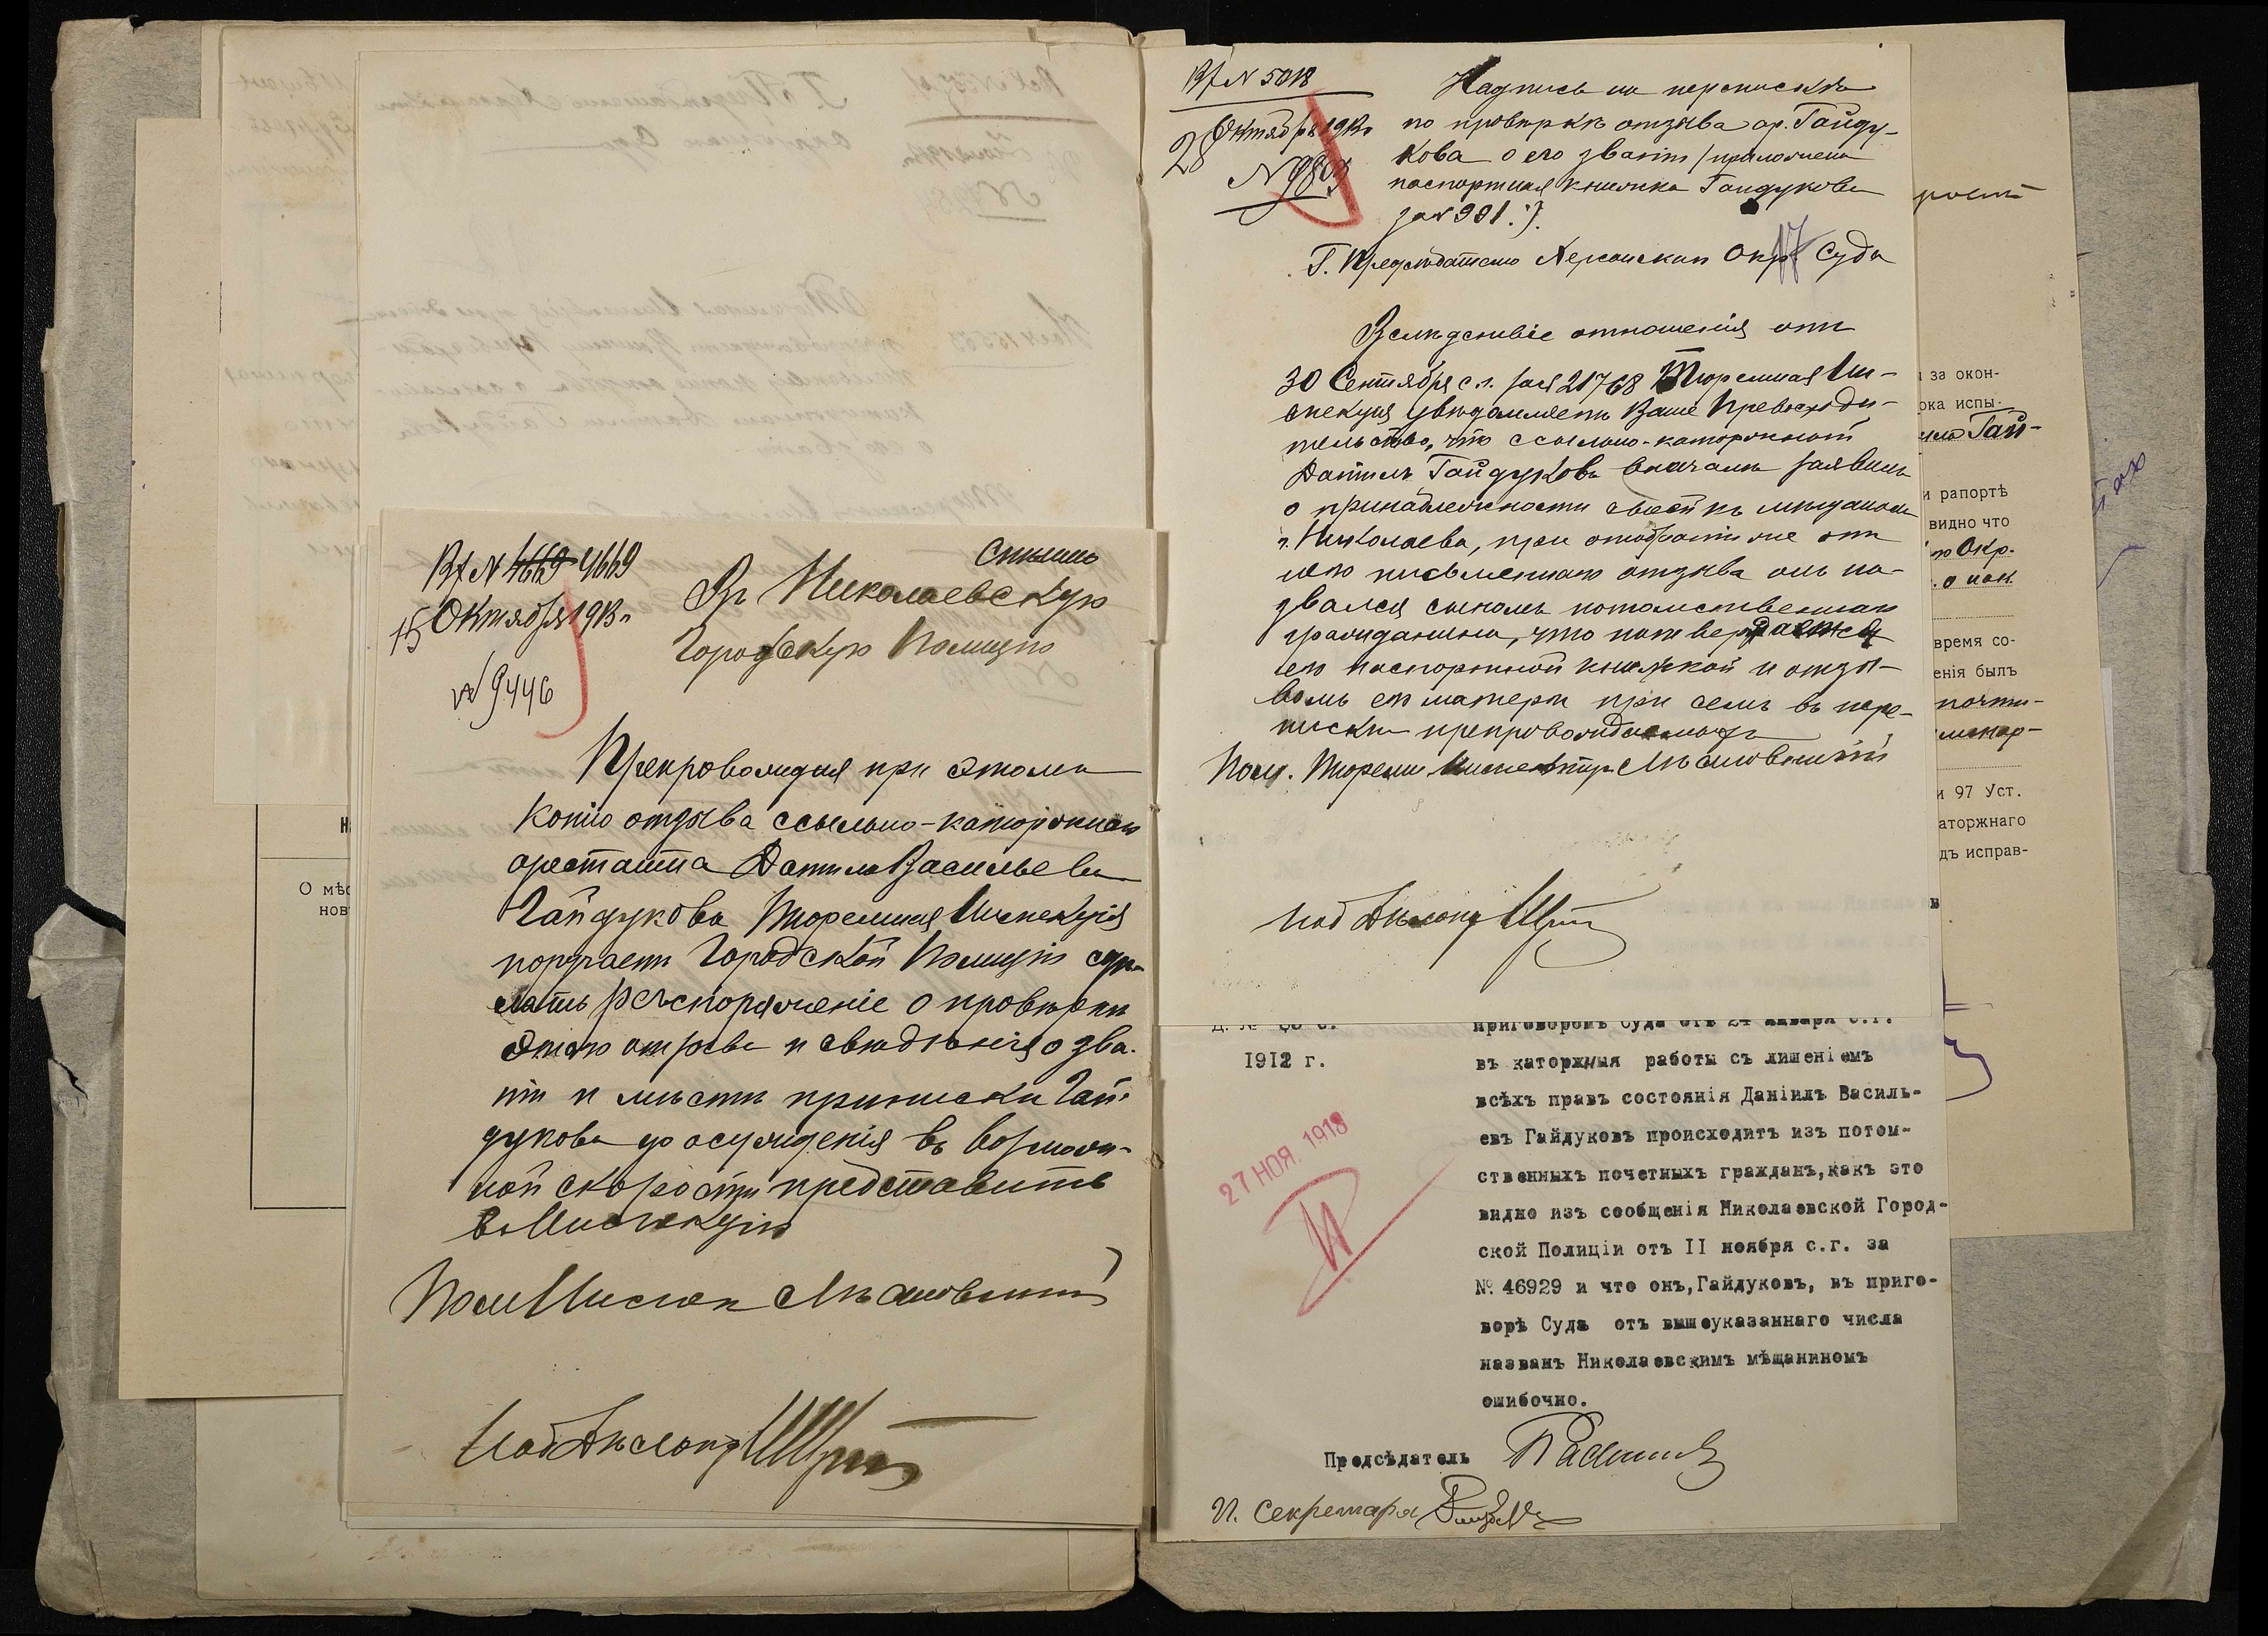 Вх N 4669 4669
15 Октября 1913 г
N 9446
Спешно
Въ Николаевскую
Городскую Полицію
Препровождая при этомъ
копію отзыва ссыльно-каторжнаго
арестанта Даніила Васильева
Гайдукова Тюремная Инспекція
поручаетъ Городской Полиціи сдѣ-
лать распоряженіе о провѣркѣ
этого отзыва и свѣдѣнія о зва-
ніи и мѣстѣ приписки Гай-
дукова до осужденія въ возмож-
ной скорости представить
въ Инспекцію
Пом Инспек
Вх N 5018
28 Октября 1913 г
N 9803
Надпись на перепискѣ
по провѣркѣ отзыва ар. Гайду-
кова о его званіи (приложена
паспортная книжка Гайдукова
за N 991.).
17
Г. Предсѣдателю Херсонскаго Окр. Суда
Вслѣдствіе отношенія отъ
30 Сентября с.г. за N 21768 Тюремная Ин-
спекція увѣдомляетъ Ваше Превосходи-
тельство, что ссыльно-каторжный
Даніилъ Гайдуковъ вначалѣ заявилъ
о принадлежности своей къ мѣщанамъ
г. Николаева, при отобраніи же отъ
него письменнаго отзыва онъ на-
звался сыномъ потомственнаго
гражданина, что подтверждается
его паспортной книжкой и отзы-
вомъ его матери при семъ въ пере-
пискѣ препровождаемыхъ
Пом. Тюремн Инспектора
ростѣ
за окон-
ока испы-
Гай-
и рапортѣ
видно что
Окр.
время со-
енія былъ
почти-
и 97 Уст.
аторжнаго
дъ исправ-
О мѣс
нов
1912 г.
27 НОЯ. 1913
приговоромъ Суда отъ 24 января с.г.
въ каторжныя работы съ лишеніемъ
всѣхъ правъ состоянія Даніилъ Василь-
евъ Гайдуковъ происходитъ изъ потом-
ственныхъ почетныхъ гражданъ,какъ это
видно изъ сообщенія Николаевской Город-
ской Полиціи отъ II ноября с.г. за
№ 46929 и что онъ,Гайдуковъ, въ приго-
ворѣ Суда отъ вышеуказаннаго числа
названъ Николаевскимъ мѣщаниномъ
ошибочно.
Предсѣдатель
И. Секретаря